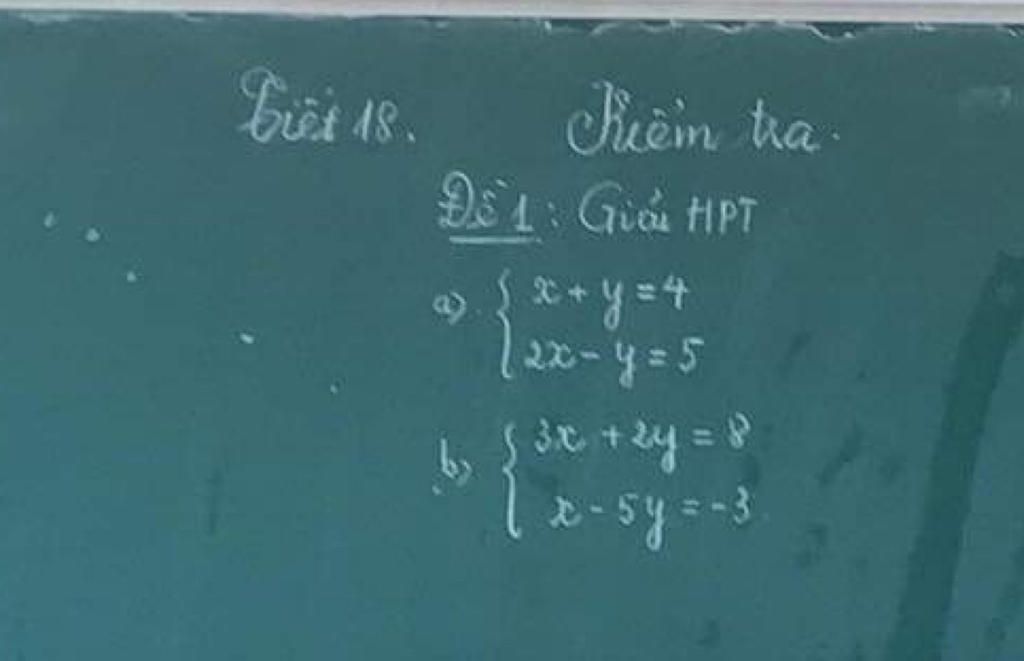 Tiết 18. Kiểm tra.
Đề 1: Giải HPT
a) { x + y = 4
2x - y = 5
b) { 3x + 2y = 8
x - 5y = -3